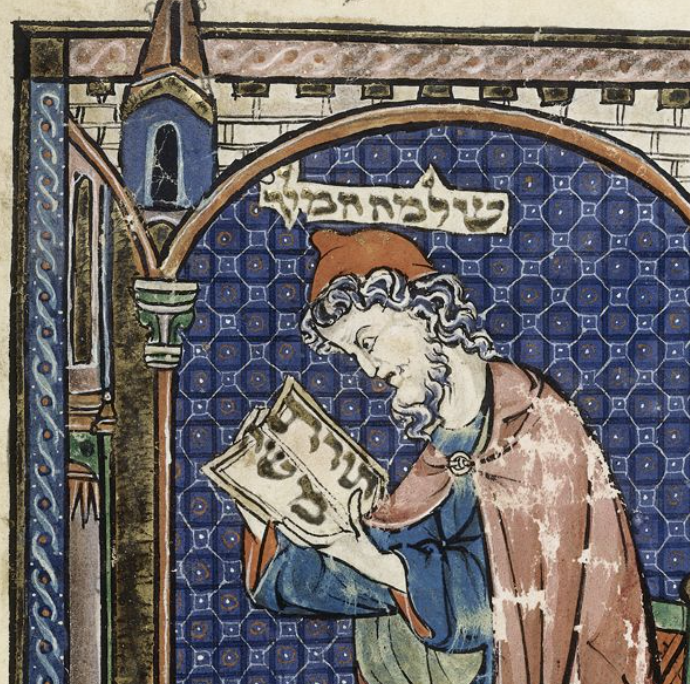 שלמה המלך
תורת
משה